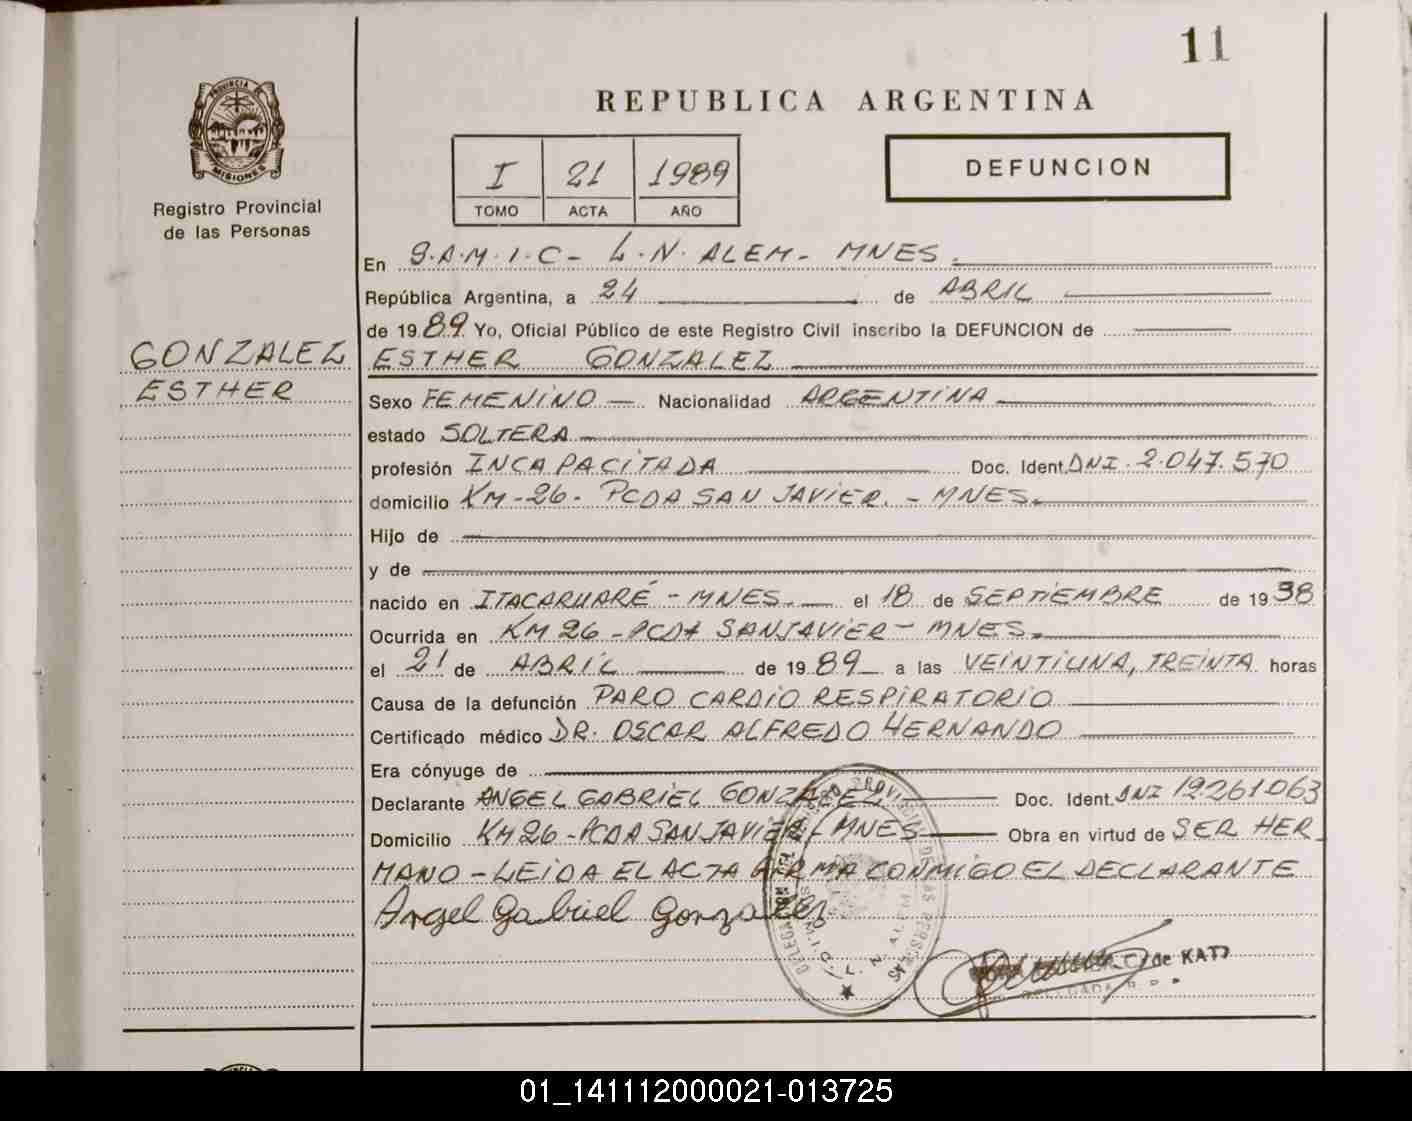 11
REPUBLICA ARGENTINA
PROVINCIA DE
MISIONES
Registro Provincial
de las Personas
I 21 1989
TOMO ACTA AÑO
DEFUNCION
En S.A.M.I.C - L.N. ALEM - MNES.
República Argentina, a 24 de ABRIL
de 1989 Yo, Oficial Público de este Registro Civil inscribo la DEFUNCION de
GONZALEZ
ESTHER
ESTHER GONZALEZ
Sexo FEMENINO Nacionalidad ARGENTINA
estado SOLTERA
profesión INCAPACITADA Doc. Ident. DNI. 2.047.570
domicilio KM-26- PCDA SAN JAVIER. - MNES.
Hijo de
y de
nacido en ITACARUARÉ - MNES. el 18 de SEPTIEMBRE de 1938
Ocurrida en KM 26 - PCDA SAN JAVIER - MNES.
el 21 de ABRIL de 1989 a las VEINTIUNA, TREINTA horas
Causa de la defunción PARO CARDIO RESPIRATORIO
Certificado médico DR. OSCAR ALFREDO HERNANDO
Era cónyuge de
Declarante ANGEL GABRIEL GONZALEZ Doc. Ident. DNI 19261063
Domicilio KM 26 - PCDA SAN JAVIER - MNES Obra en virtud de SER HER
MANO - LEIDA EL ACTA FIRMA CONMIGO EL DECLARANTE
Angel Gabriel Gonzalez
de KATZ
DELEGADA R. P.
01_141112000021-013725